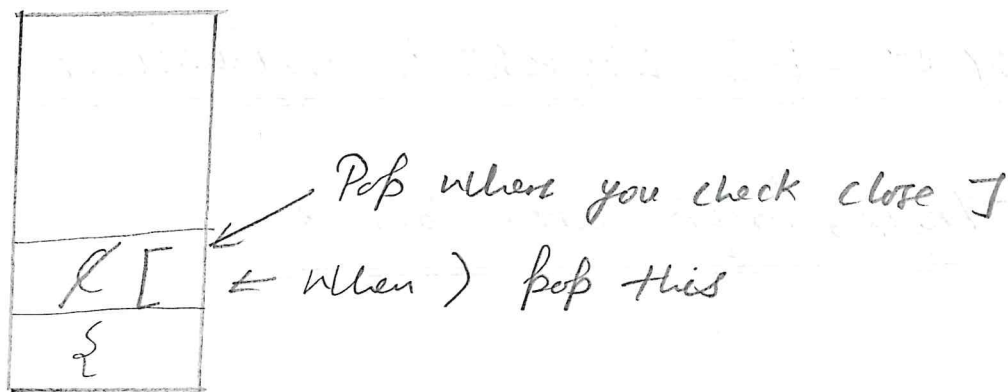 Pop when you check close ]
( [ ← when ) pop this
{